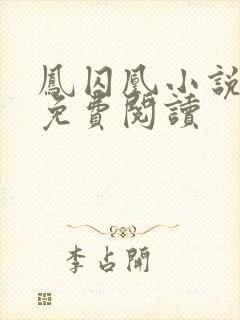 鳳囚凰小說
免費閱讀
李占開